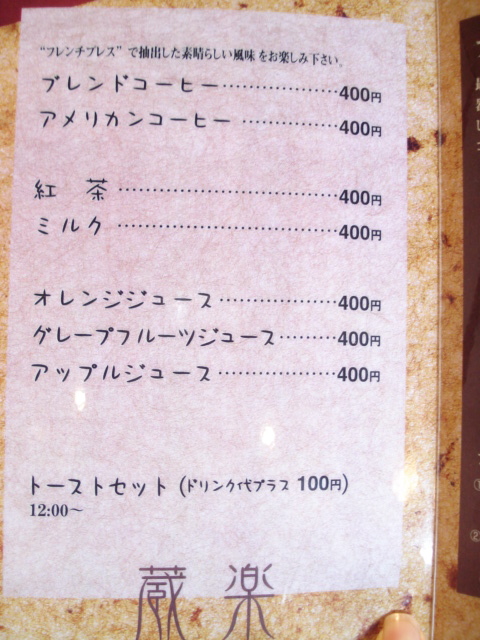 “フレンチプレス”で抽出した素晴らしい風味をお楽しみ下さい。
ブレンドコーヒー……………400円
アメリカンコーヒー……………400円
紅　茶……………………400円
ミルク……………………400円
オレンジジュース……………400円
グレープフルーツジュース………400円
アップルジュース……………400円
トーストセット (ドリンク代プラス 100円)
12:00～
蔵 楽